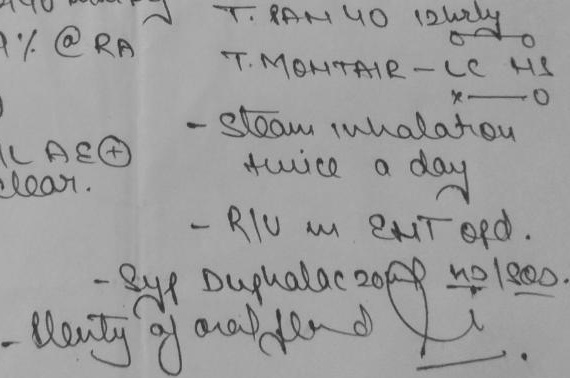 T. PAN 40 12hrly
% @ RA
T. MONTAIR - LC HS
x — o
- Steam inhalation
AE +
twice a day
clear.
- R/U in ENT opd.
- Syp Duphalac 20ml HS/SOS.
- Plenty of oral fluid